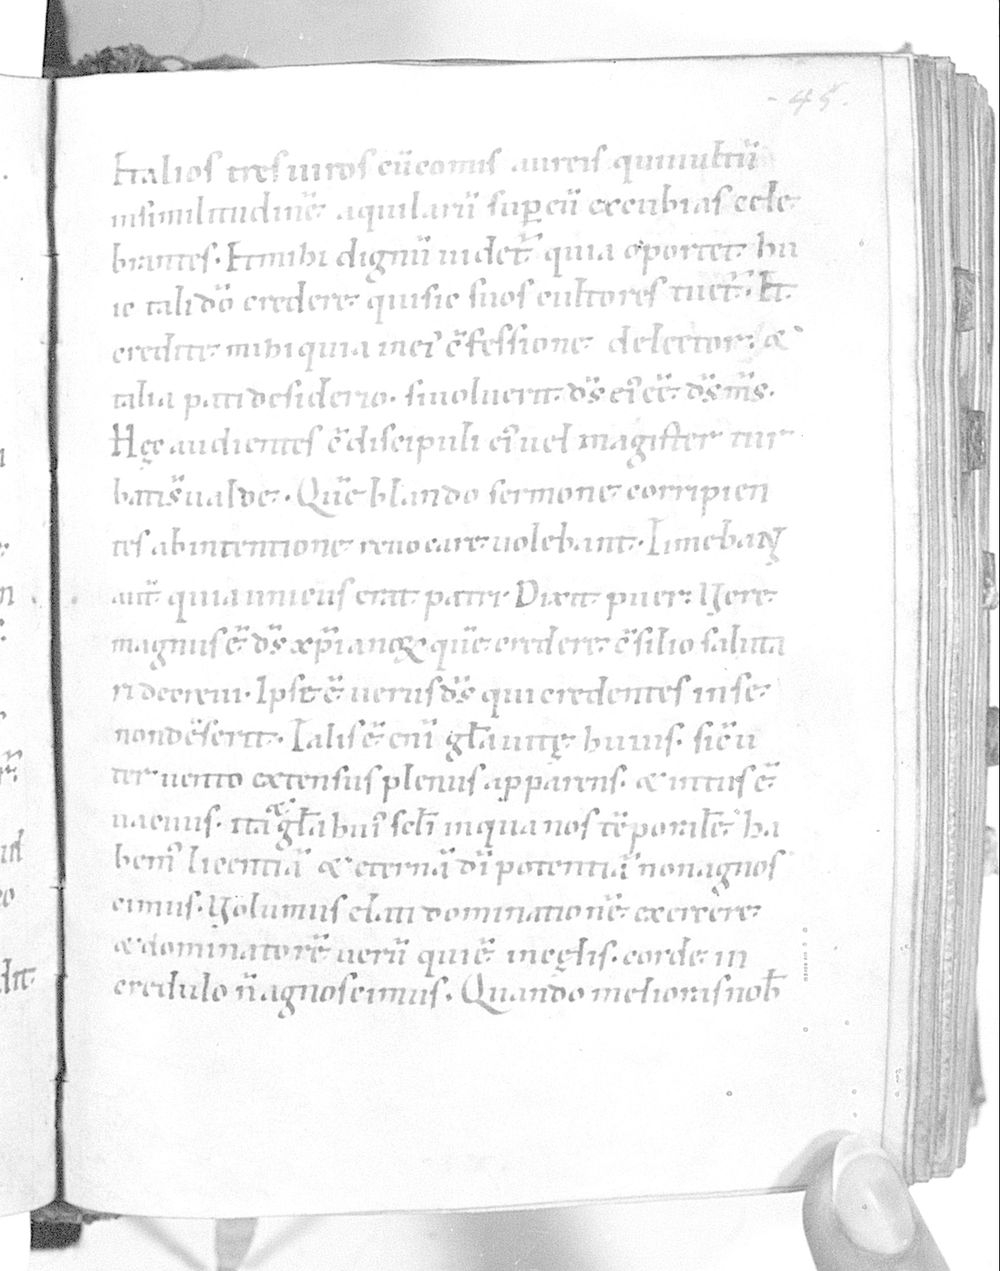 - 45.
Et alios tres uiros cū comis aureis qui multū
in similitudinē aquilarū sup eū excubias cele
brantes. Et mihi dignū uidet̄ quia oportet hu
ic tali dō credere qui sic suos cultores tuet̄. Et
credite mihi quia in ei' c̄fessione delector. &
talia pati desiderio. si uoluerit ds̄ ei' eē ds̄ ms̄.
Hęc audientes c̄discipuli ei' uel magister tur
bati s̄ ualde. Quē blando sermone corripien
tes ab intentione reuocare uolebant. Timebant
aut̄ quia unicus erat patri. Dixit puer. Vere
magnus ē ds̄ xp̄ianoꝝ quē credere c̄silio saluta
ri decreui. Ipse ē uerus ds̄ qui credentes in se
non dēserit. Talis ē eni' gl̄a uitę huius. sic̄ u
ter uento extensus plenus apparens. & intus ē
uacuus. ita & gl̄a hui' scl̄i in qua nos tēporale' ha
bem' licentiā & eternā dī potentiā non agnos
cimus. Volumus elati dominationē exercere
& dominatorē uerū qui ē in cęlis. corde in
credulo n̄ agnoscimus. Quando melioris nob̄